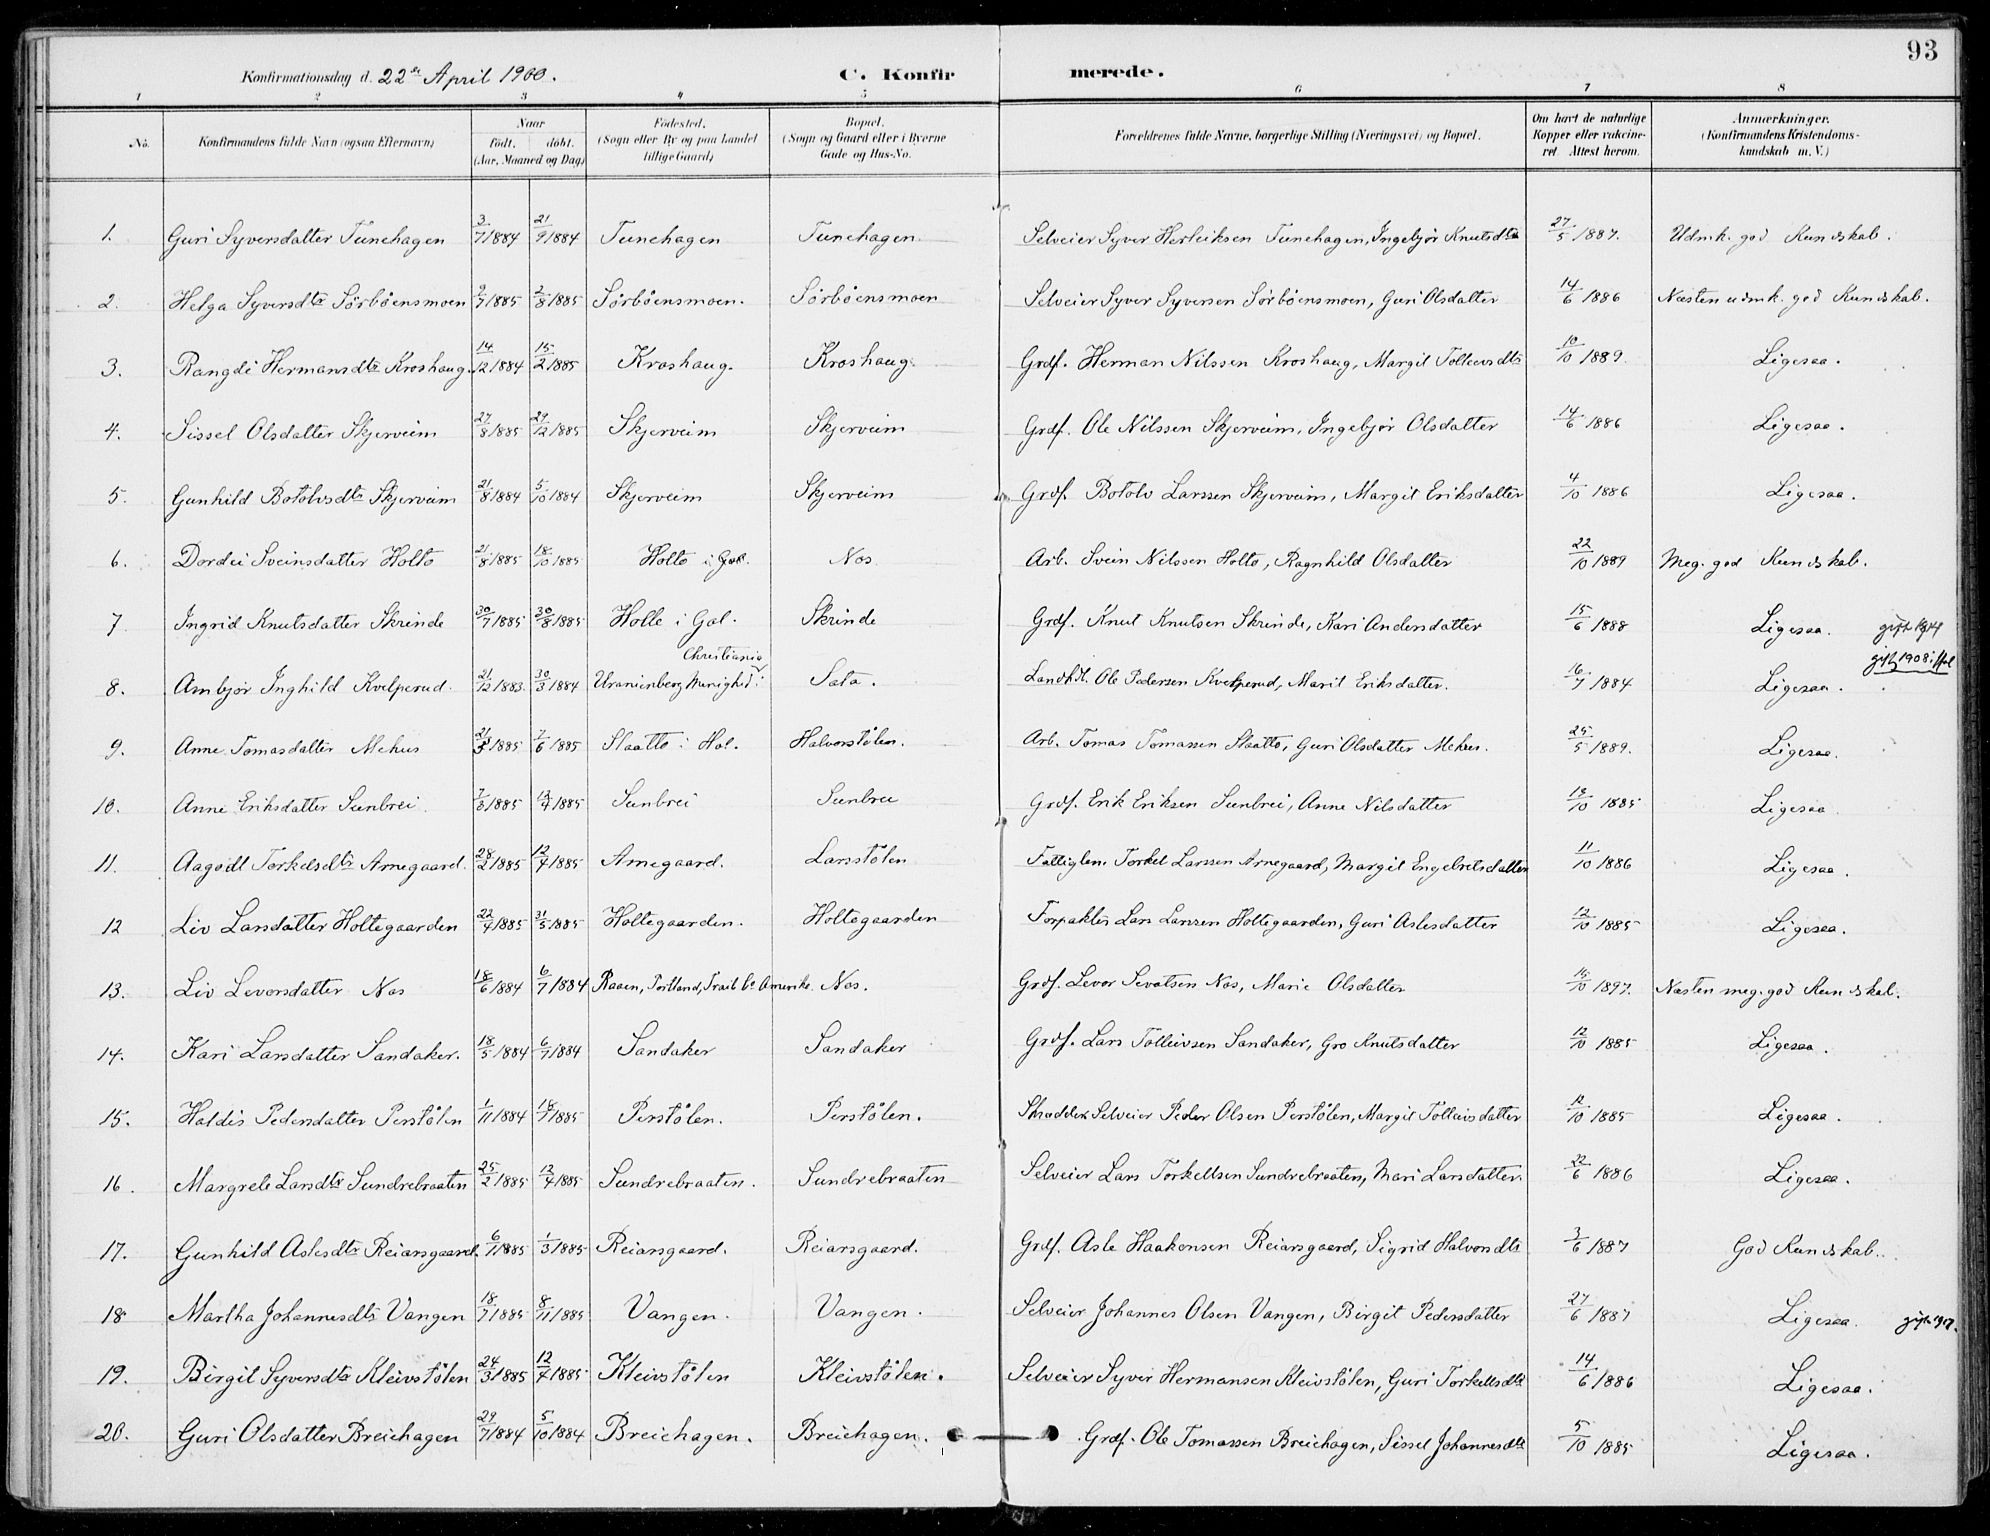 93
Konfirmationsdag d. 22de April 1900. C. Konfirmerede.
1 2 3 4 5 6 7 8
No. Konfirmandens fulde Navn (ogsaa Efternavn) Naar født. døbt. (Aar, Maaned og Dag) Fødested. (Sogn eller By og paa Landet tillige Gaard) Bopæl. (Sogn og Gaard eller i Byerne Gade og Hus-No. Forældrenes fulde Navne, borgerlige Stilling (Næringsvei) og Bopæl. Om havt de naturlige Kopper eller vakcineret Attest herom. Anmærkninger. (Konfirmandens Kristendomskundskab m. V.)
1. Guri Syversdatter Tunehagen 3/7 1884 21/9 1884 Tunehagen Tunehagen Selveier Syver Herleiksen Tunehagen, Ingebjør Knutsdtr 27/5 1887. Udmk. god Kundskab.
2. Helga Syversdtr Sørbøensmoen 2/7 1885 2/8 1885 Sørbøensmoen. Sørbøensmoen Selveier Syver Syversen Sørbøensmoen, Guri Olsdatter 14/6 1886 Næsten udmk. god Kundskab.
3. Rangdi Hermansdtr Kroshaug. 14/12 1884 15/2 1885 Kroshaug. Kroshaug. Grdf. Herman Nilssen Kroshaug, Margit Tolleivsdtr 10/10 1889. Ligesaa.
4. Sissel Olsdatter Skjerveim 27/8 1885 29/12 1885 Skjerveim Skjerveim Grdf. Ole Nilssen Skjerveim, Ingebjør Olsdatter 14/6 1886 Ligesaa.
5. Gunhild Botolvsdtr Skjerveim 21/8 1884 5/10 1884 Skjerveim Skjerveim Grdf. Botolv Larssen Skjerveim, Margit Eriksdatter 4/10 1886 Ligesaa.
6. Dordei Sveinsdatter Holto 21/8 1885 18/10 1885 Holto i Gol. Nos Arb. Svein Nilssen Holto, Ragnhild Olsdatter 22/10 1889 Meg. god Kundskab.
7. Ingrid Knutsdatter Skrinde 30/7 1885 30/8 1885 Holle i Gol. Skrinde Grdf. Knut Knutsen Skrinde, Kari Andersdatter 15/6 1888 Ligesaa. gift
8. Ambjør Inghild Kvelperud. 21/12 1883. 30/3 1884 Uranienberg Menighed i Christiania Sata. Landhdl. Ole Pedersen Kvelperud, Marit Eriksdatter. 16/7 1884 Ligesaa. gift 1908 i Hol
9. Anne Tomasdatter Mehus 21/5 1885 7/6 1885 Slaatto i Hol. Halvorstølen. Arb. Tomas Tomassen Slaatto, Guri Olsdatter Mehus. 25/5 1889. Ligesaa.
10. Anne Eriksdatter Sunbrei 7/3 1885 12/4 1885 Sunbrei Sunbrei Grdf. Erik Eriksen Sunbrei, Anne Nilsdatter 13/10 1885 Ligesaa
11. Aagodt Torkelsdtr Arnegaard. 28/2 1885 12/4 1885 Arnegaard. Larsstølen Fattiglem. Torkel Larssen Arnegaard, Margit Engebretsdatter 11/10 1886 Ligesaa.
12 Liv Larsdatter Holtegaarden 22/4 1885 31/5 1885 Holtegaarden. Holtegaarden Forpakter Lars Larssen Holtegaarden, Guri Aslesdatter 12/10 1885 Ligesaa.
13. Liv Levorsdatter Nos 18/6 1884 6/7 1884 Raaen, Portland, Trail Co Amerika. Nos. Grdf. Levor Sevatsen Nos, Marie Olsdatter 15/10 1897. Næsten meg. god Kundskab.
14. Kari Larsdatter Sandaker. 18/5 1884 6/7 1884 Sandaker Sandaker Grdf. Lars Tolleivsen Sandaker, Gro Knutsdatter 12/10 1885 Ligesaa.
15. Haldis Pedersdatter Perstølen 1/11 1884 18/7 1885 Perstølen. Perstølen. Skrædder Selveier Peder Olsen Perstølen, Margit Tolleivsdatter 12/10 1885 Ligesaa.
16. Margrete Larsdtr Sundrebraaten 25/2 1885 12/4 1885 Sundrebraaten. Sundrebraaten Selveier Lars Torkellsen Sundrebraaten, Mari Larsdatter. 22/6 1886 Ligesaa.
17. Gunhild Aslesdtr Reiarsgaard. 6/1 1885 1/3 1885 Reiarsgaard. Reiarsgaard. Grdf. Asle Haakonsen Reiarsgaard, Sigrid Halvorsdtr 3/6 1887 God Kundskab.
18 Martha Johannesdtr Vangen 18/7 1885 8/11 1885 Vangen. Vangen. Selveier Johannes Olsen Vangen, Birgit Pedersdatter 27/6 1887 Ligesaa. gift 1917.
19. Birgit Syversdtr Kleivstølen 24/3 1885 12/4 1885 Kleivstølen Kleivstølen. Selveier Syver Hermansen Kleivstølen, Guri Torkellsdtr 14/6 1886 Ligesaa.
20. Guri Olsdatter Breiehagen 29/7 1884 5/10 1884 Breiehagen. Breiehagen. Grdf. Ole Tomassen Breiehagen, Sissel Johannesdtr 5/10 1885 Ligesaa.